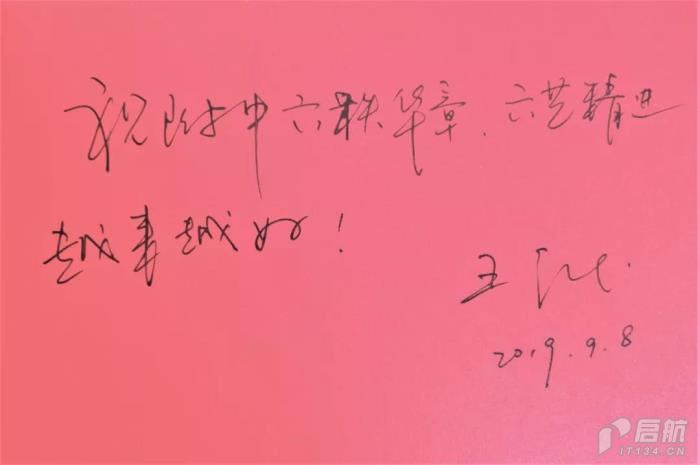 祝附中六秩华章、六艺精进
越来越好!
王
2019.9.8
启航
IT134.CN